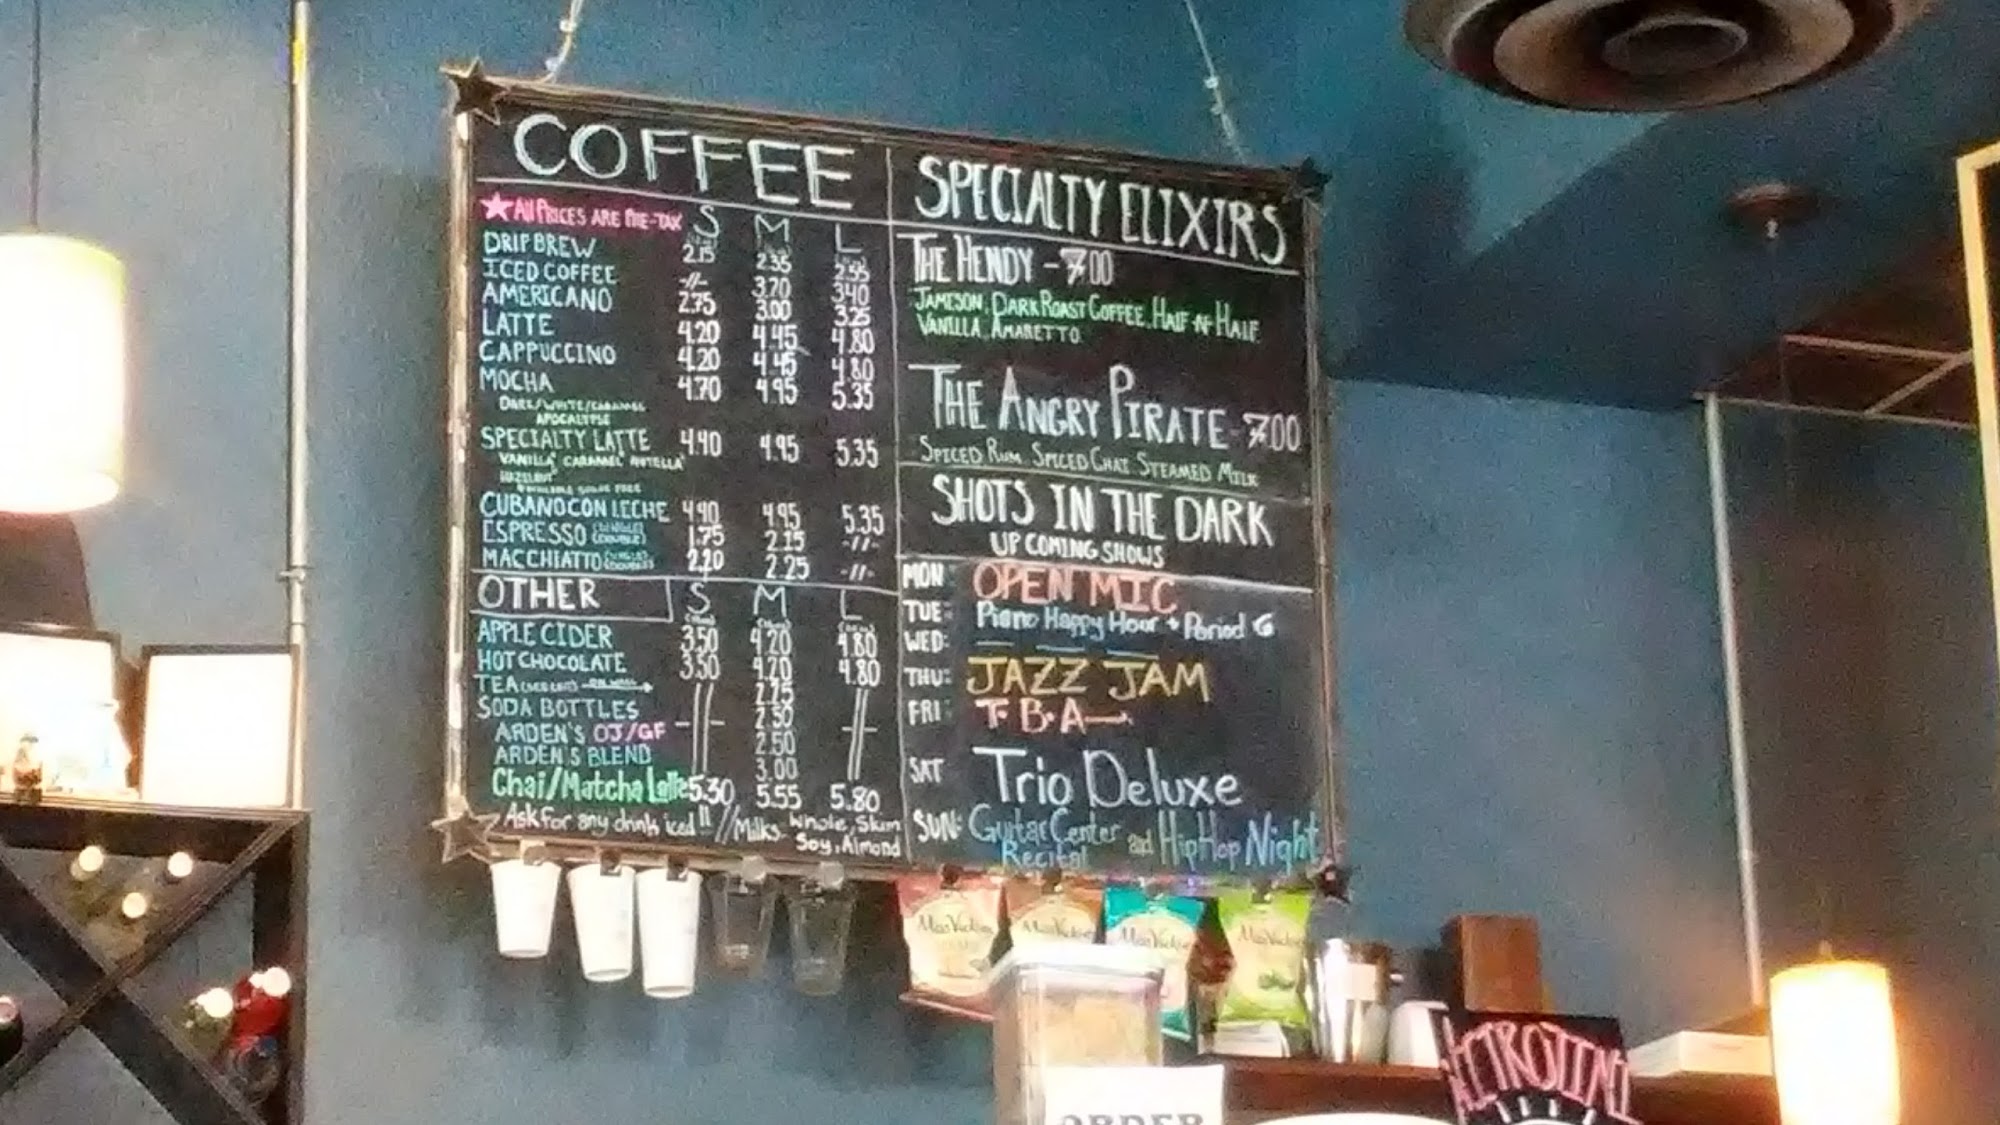 COFFEE
★ All PRICES ARE PRE-TAX S M L
DRIP BREW 2.15 2.35 2.55
ICED COFFEE -//- 3.20 3.40
AMERICANO 2.75 3.00 3.25
LATTE 4.20 4.45 4.80
CAPPUCCINO 4.20 4.45 4.80
MOCHA 4.70 4.95 5.35
DARK/WHITE/CARAMEL
APOCALYPSE
SPECIALTY LATTE 4.40 4.95 5.35
VANILLA CARAMEL NUTELLA
HAZELNUT
AVAILABLE SUGAR FREE
CUBANO CON LECHE 4.40 4.95 5.35
ESPRESSO (SINGLE) (DOUBLE) 1.75 2.15 -//-
MACCHIATTO (SINGLE) (DOUBLE) 2.20 2.25 -//-
OTHER S M L
APPLE CIDER 3.50 4.20 4.80
HOT CHOCOLATE 3.50 4.20 4.80
TEA 2.25
SODA BOTTLES 2.50
ARDEN'S OJ/GF 2.50
ARDEN'S BLEND 3.00
Chai/Matcha Latte 5.30 5.55 5.80
Ask for any drink iced!! // Milks Whole, Skim
Soy, Almond
SPECIALTY ELIXIRS
THE HENDY - 7.00
JAMESON, DARK ROAST COFFEE, HALF N HALF
VANILLA, AMARETTO
THE ANGRY PIRATE - 7.00
SPICED RUM SPICED CHAI STEAMED MILK
SHOTS IN THE DARK
UP COMING SHOWS
MON: OPEN MIC
TUE: Piano Happy Hour + Period G
WED:
THU: JAZZ JAM
FRI: T.B.A
SAT Trio Deluxe
SUN: Guitar Center and HipHop Night
Recital
MissVickie's
MissVickie's
MissVickie's
MissVickie's
ORDER